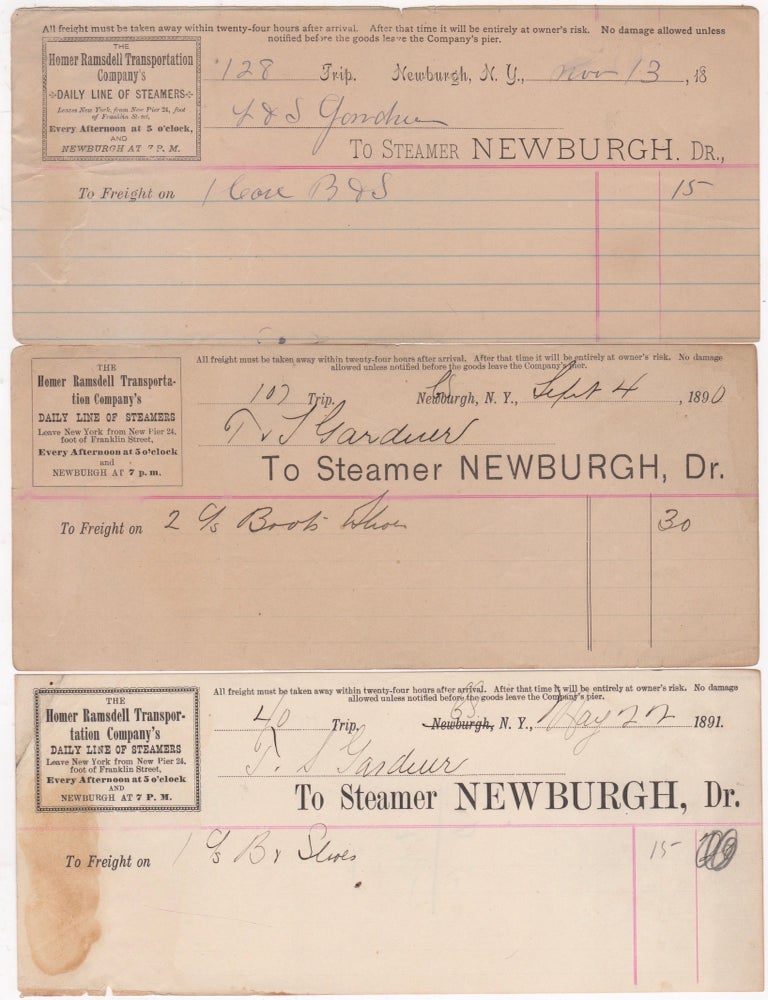 All freight must be taken away within twenty-four hours after arrival. After that time it will be entirely at owner's risk. No damage allowed unless
notified before the goods leave the Company's pier.
THE
Homer Ramsdell Transportation
Company's
DAILY LINE OF STEAMERS
Leaves New York, from New Pier 24, foot
of Franklin Street,
Every Afternoon at 5 o'clock,
AND
NEWBURGH AT 7 P. M.
128 Trip. Newburgh, N. Y., Nov 13, 18
T & S
TO STEAMER NEWBURGH. DR.,
To Freight on 1 Case B & S 15
THE
Homer Ramsdell Transporta-
tion Company's
DAILY LINE OF STEAMERS
Leave New York from New Pier 24,
foot of Franklin Street,
Every Afternoon at 5 o'clock
and
NEWBURGH AT 7 p. m.
All freight must be taken away within twenty-four hours after arrival. After that time it will be entirely at owner's risk. No damage
allowed unless notified before the goods leave the Company's pier.
107 Trip. Newburgh, N. Y., Sept 4, 1890
T & S Gardner
To Steamer NEWBURGH, Dr.
To Freight on 2 c/s Boots Shoes 30
THE
Homer Ramsdell Transpor-
tation Company's
DAILY LINE OF STEAMERS
Leave New York from New Pier 24,
foot of Franklin Street,
Every Afternoon at 5 o'clock
AND
NEWBURGH AT 7 P. M.
All freight must be taken away within twenty-four hours after arrival. After that time it will be entirely at owner's risk. No damage
allowed unless notified before the goods leave the Company's pier.
40 Trip. Newburgh, N. Y., May 22 1891.
T. S Gardner
To Steamer NEWBURGH, Dr.
To Freight on 1 c/s B & Shoes 15